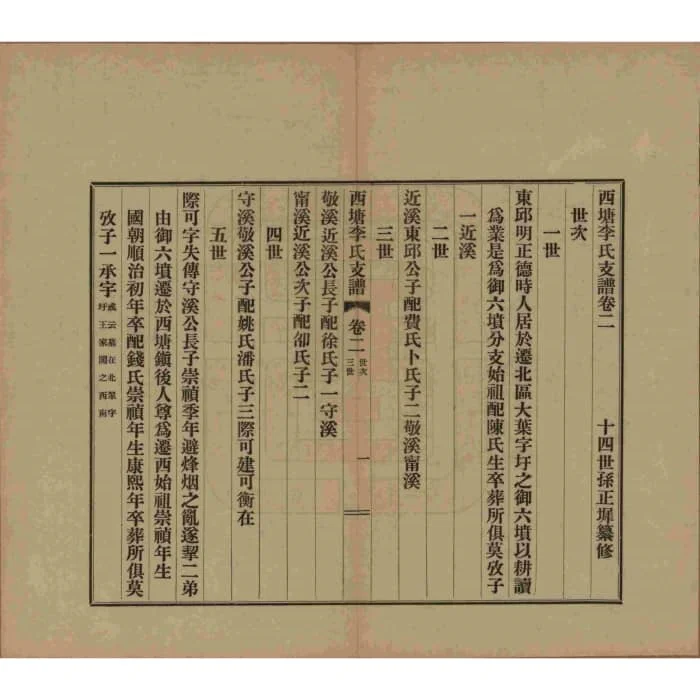 西塘李氏支譜卷二
十四世孫正墀纂修
世次
一世
東邱明正德時人居於遷北區大葉字圩之御六墳以耕讀
爲業是爲御六墳分支始祖配陳氏生卒葬所俱莫攷子
一近溪
二世
近溪東邱公子配費氏卜氏子二敬溪甯溪
三世
西塘李氏支譜
卷二
世次
三世
一
敬溪近溪公長子配徐氏子一守溪
甯溪近溪公次子配邵氏子二
四世
守溪敬溪公子配姚氏潘氏子三際可建可衡在
五世
際可字失傳守溪公長子崇禎季年避烽烟之亂遂挈二弟
由御六墳遷於西塘鎭後人尊爲遷西始祖崇禎年生
國朝順治初年卒配錢氏崇禎年生康熙年卒葬所俱莫
攷子一承宇
或云墓在北
字
圩王家
之西南